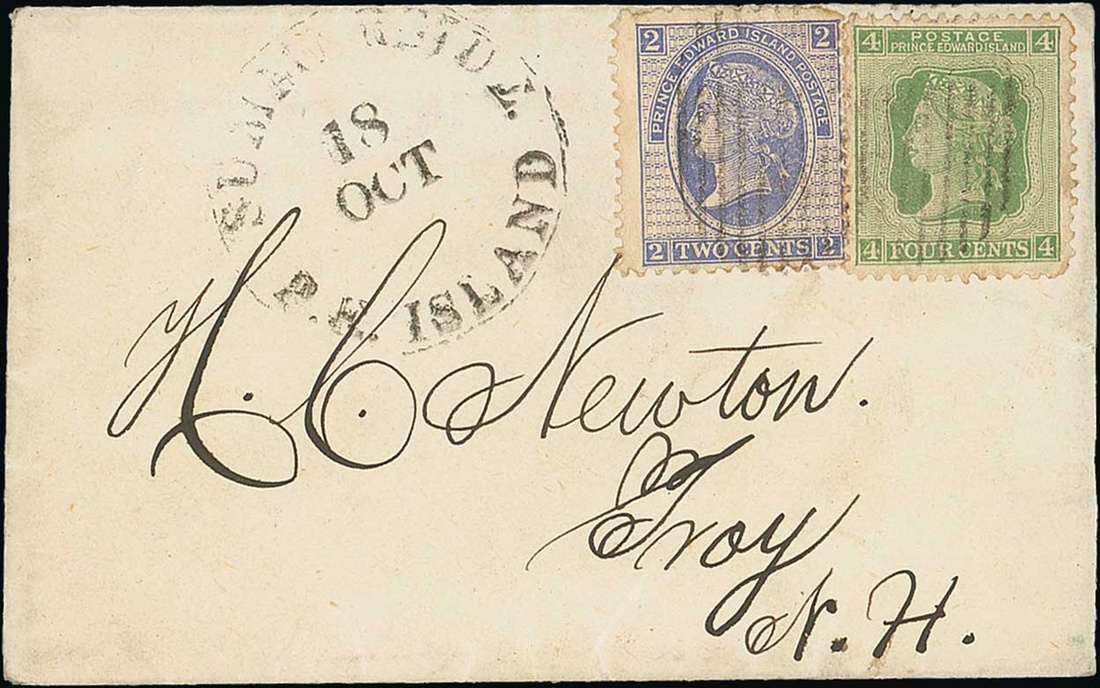 SUMMERSIDE
18
OCT
P.E. ISLAND
2 2
PRINCE EDWARD ISLAND POSTAGE
2 TWO CENTS 2
4 POSTAGE 4
PRINCE EDWARD ISLAND
4 FOUR CENTS 4
H. C. Newton.
Troy
N. H.